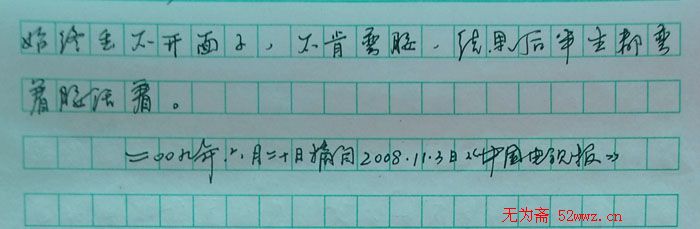 始终丢不开面子，不肯要脸，结果后半生都要
着脸活着。
二〇〇九年二月二十日摘自2008.11.3日《中国电视报》
无为斋 52wwz.cn